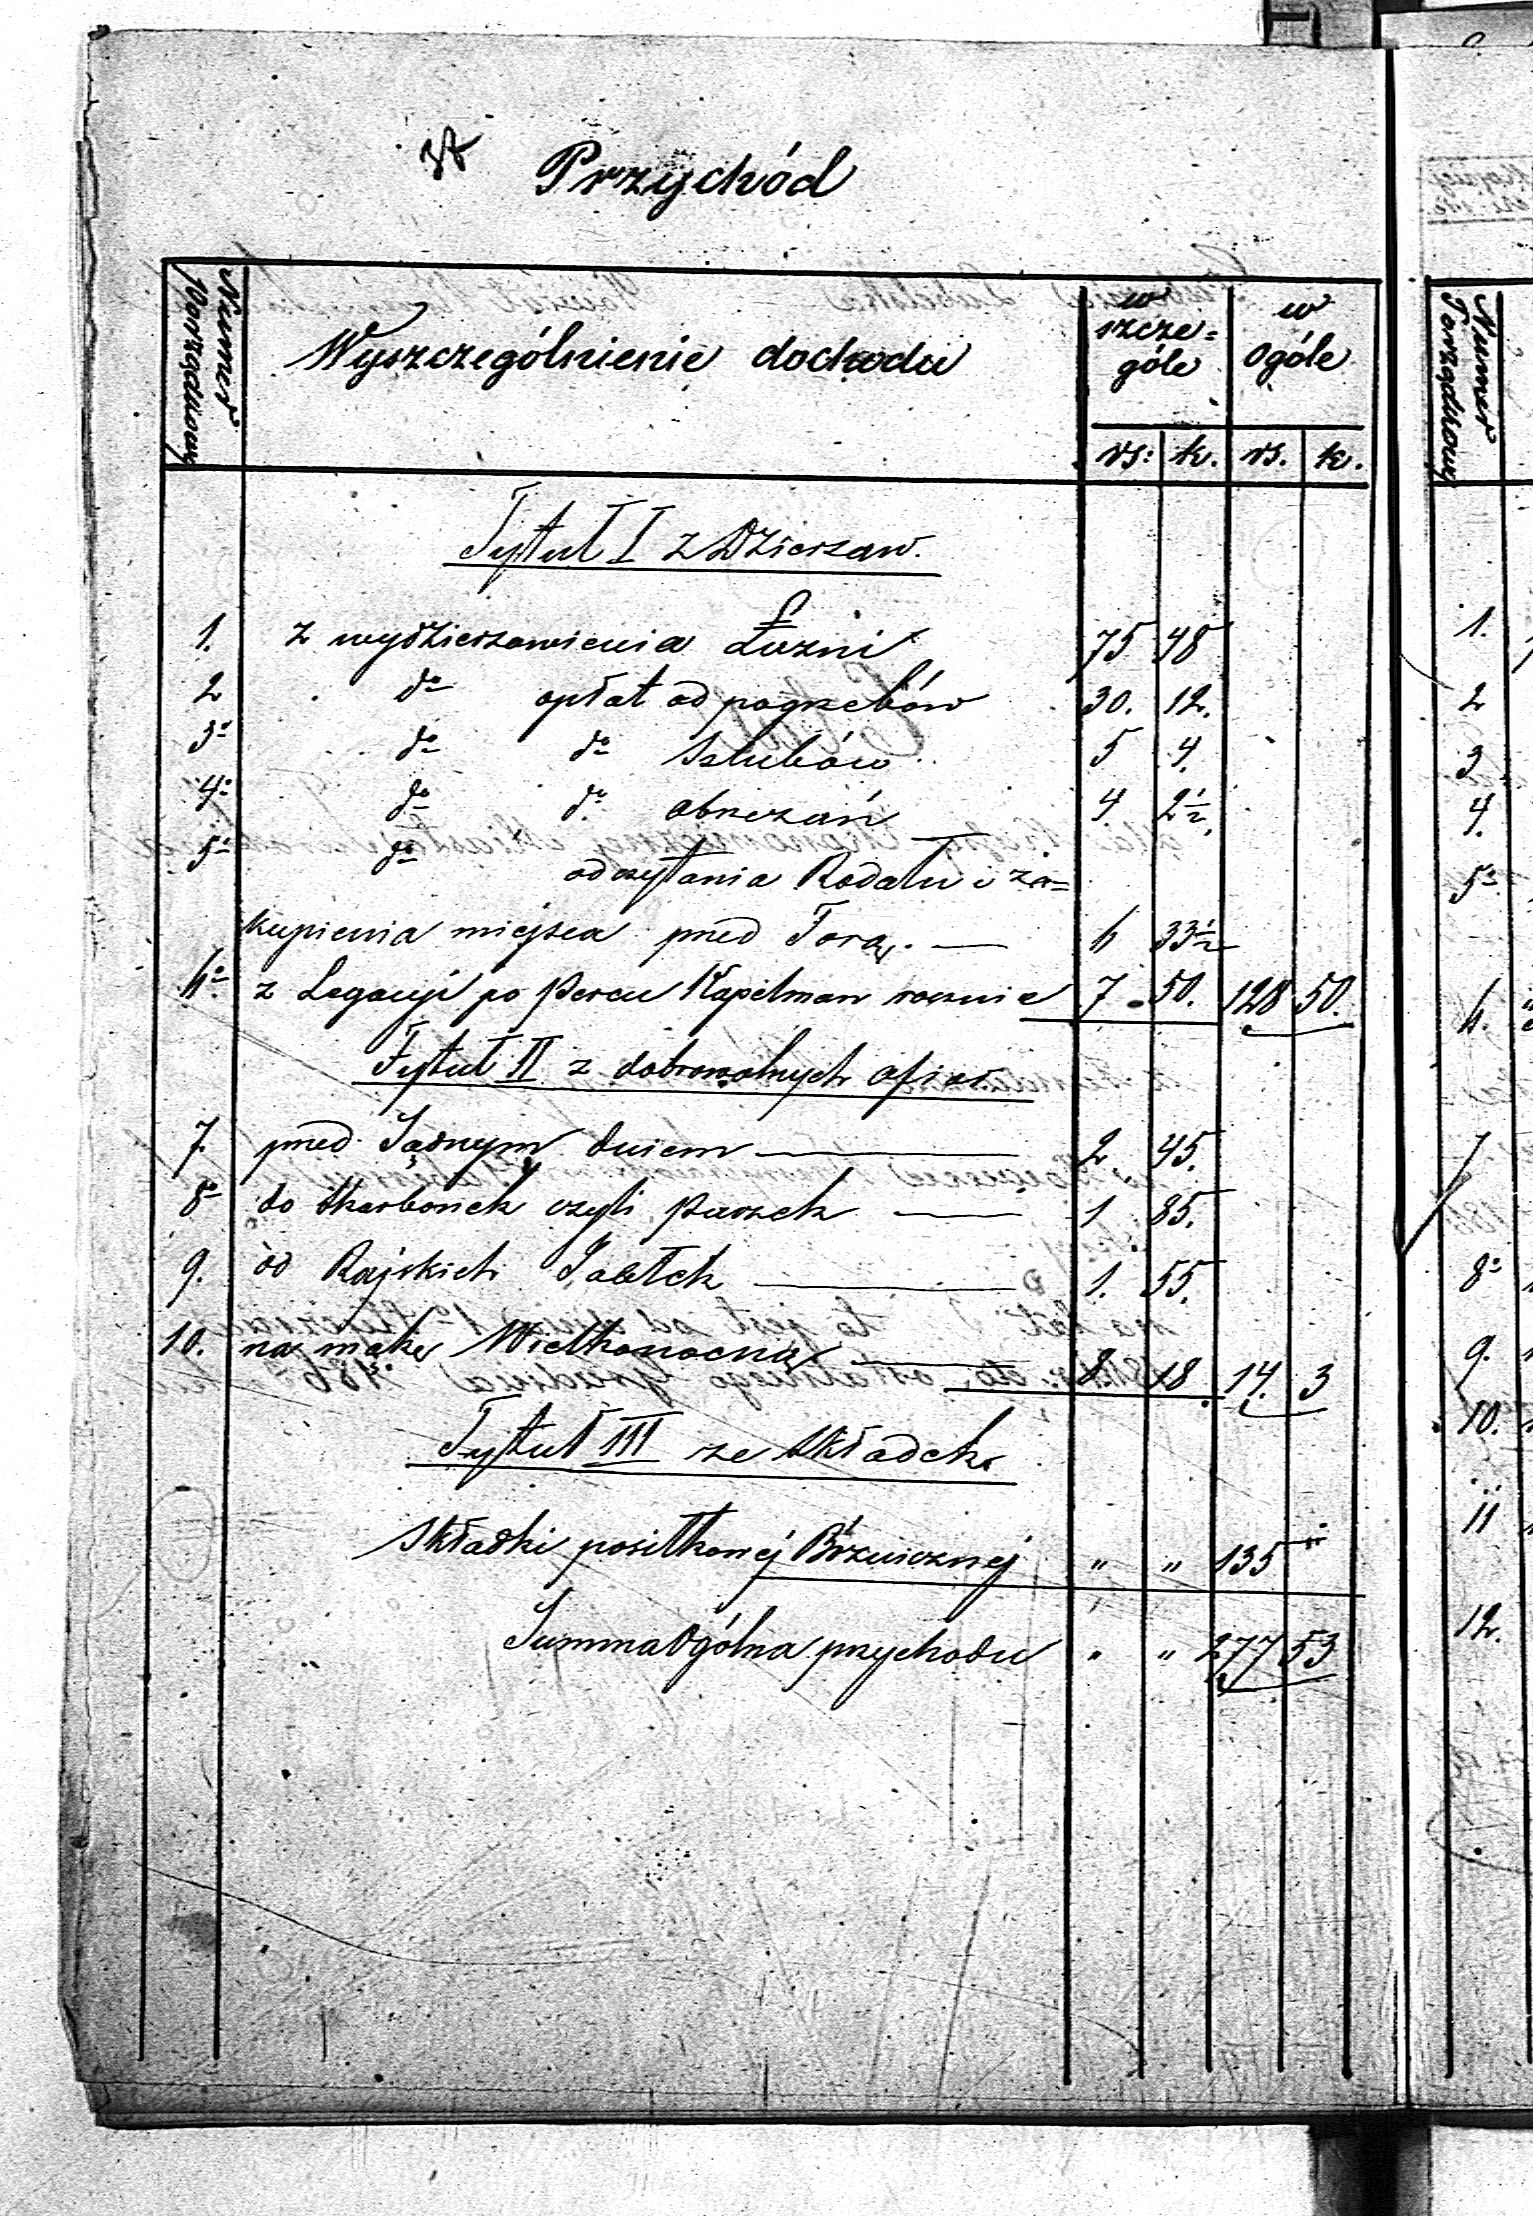 Przychód
Numer Porządkowy
Wyszczególnienie dochodu
w szcze=
góle
w ogóle
rs: k. rs. k.
Tytuł I z Dzierzaw.
1. z wydzierzawienia Łaźni 75 48
2 do opłat od pogrzebów 30. 12.
3o do do szlubów 5 4.
4o do do obrzezań 4 2 1/2.
5o do odczytania Rodału i za=
kupienia miejsca przed Torą. — 6 33 1/2
6o z Legacyi po Percu Kapelman rocznie 7 50. 128 50.
Tytuł II z dobrowolnych ofiar
7. przed Sądnym dniem — 2 45.
8o do skarbonek czyli puszek — 1 85.
9. od Rajskich Jabłek — 1. 55.
10. na mąkę Wielkanocną — 8 18 14. 3
Tytuł III ze składek.
Składki posiłkowej Bóżnicznej " " 135 "
Summa Ogólna przychodu " " 277 53
Numer Porządkowy
1.
2
3.
4.
5o
6.
7
8o
9.
10.
11
12.